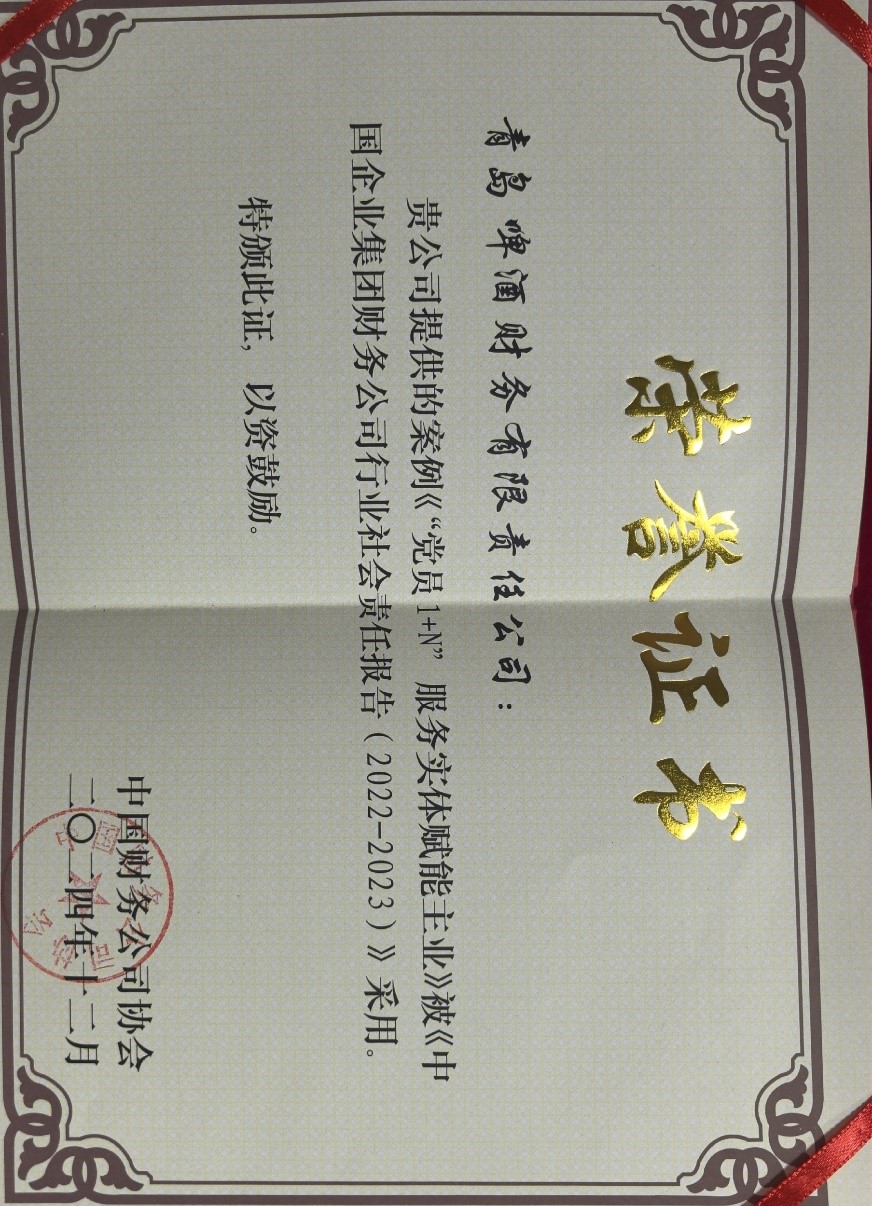 荣誉证书
青岛啤酒财务有限责任公司：
贵公司提供的案例《“党员1+N”服务实体赋能主业》被《中
国企业集团财务公司行业社会责任报告（2022-2023）》采用。
特颁此证，以资鼓励。
中国财务公司协会
二〇二四年十二月